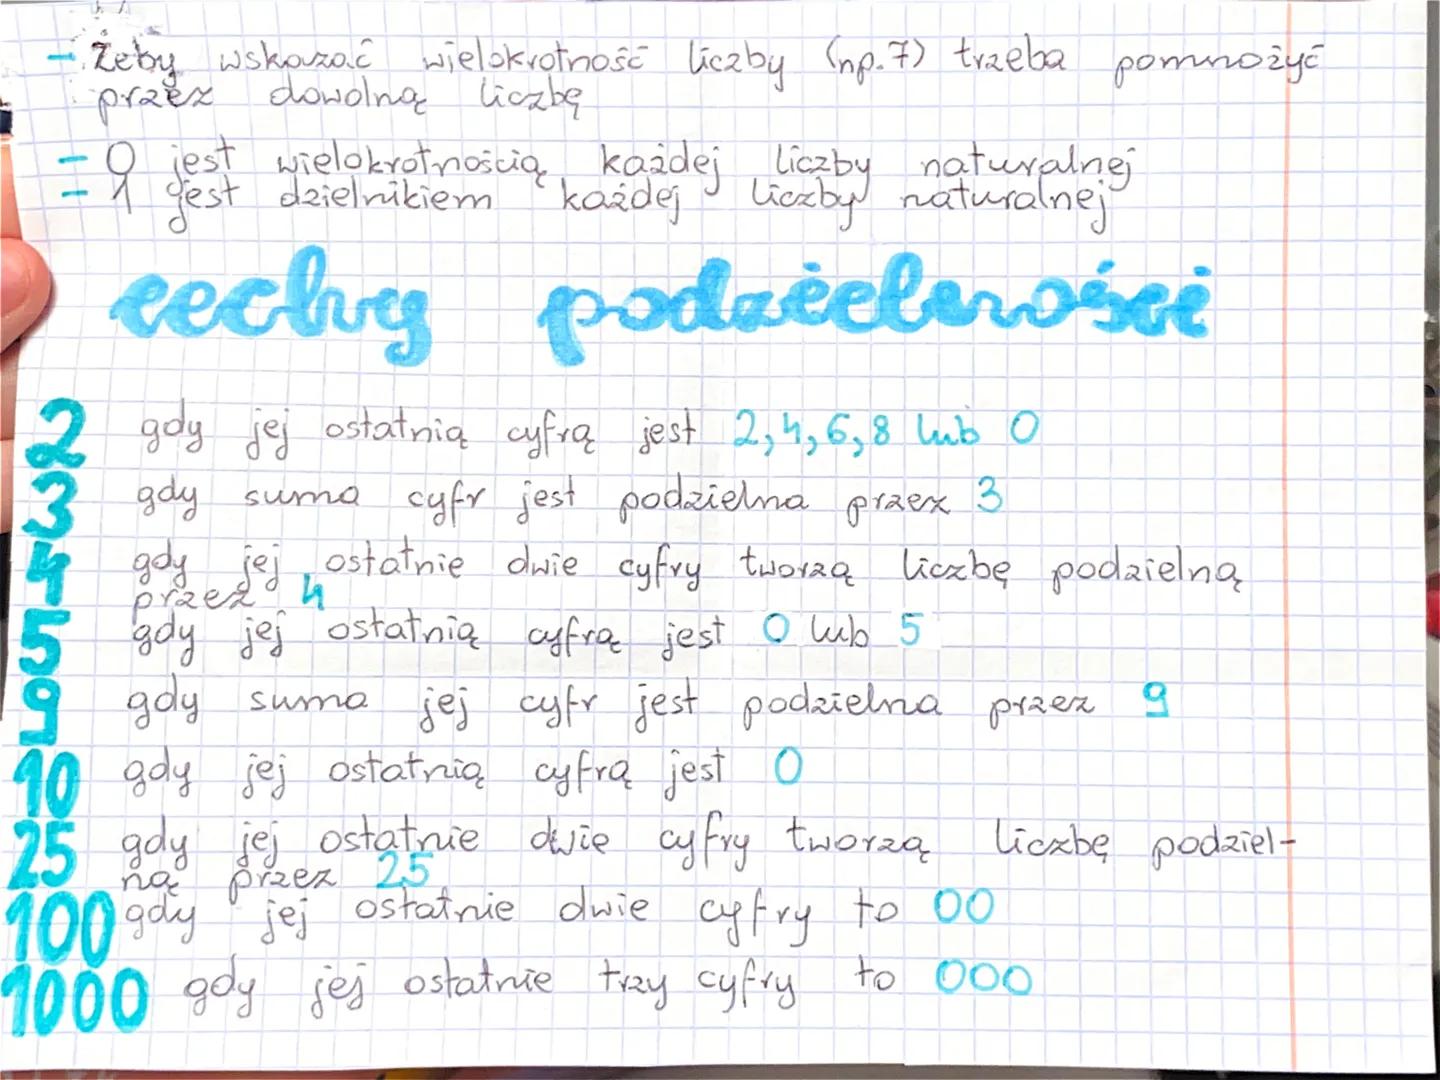 - Żeby wskazać wielokrotność liczby (np. 7) trzeba pomnożyć
przez dowolną liczbę
- 0 jest wielokrotnością każdej liczby naturalnej
- 1 jest dzielnikiem każdej liczby naturalnej
cechy podzielności
2 gdy jej ostatnią cyfrą jest 2, 4, 6, 8 lub 0
3 gdy suma cyfr jest podzielna przez 3
4 gdy jej ostatnie dwie cyfry tworzą liczbę podzielną
przez 4
5 gdy jej ostatnią cyfrą jest 0 lub 5
9 gdy suma jej cyfr jest podzielna przez 9
10 gdy jej ostatnią cyfrą jest 0
25 gdy jej ostatnie dwie cyfry tworzą liczbę podziel-
ną przez 25
100 gdy jej ostatnie dwie cyfry to 00
1000 gdy jej ostatnie trzy cyfry to 000